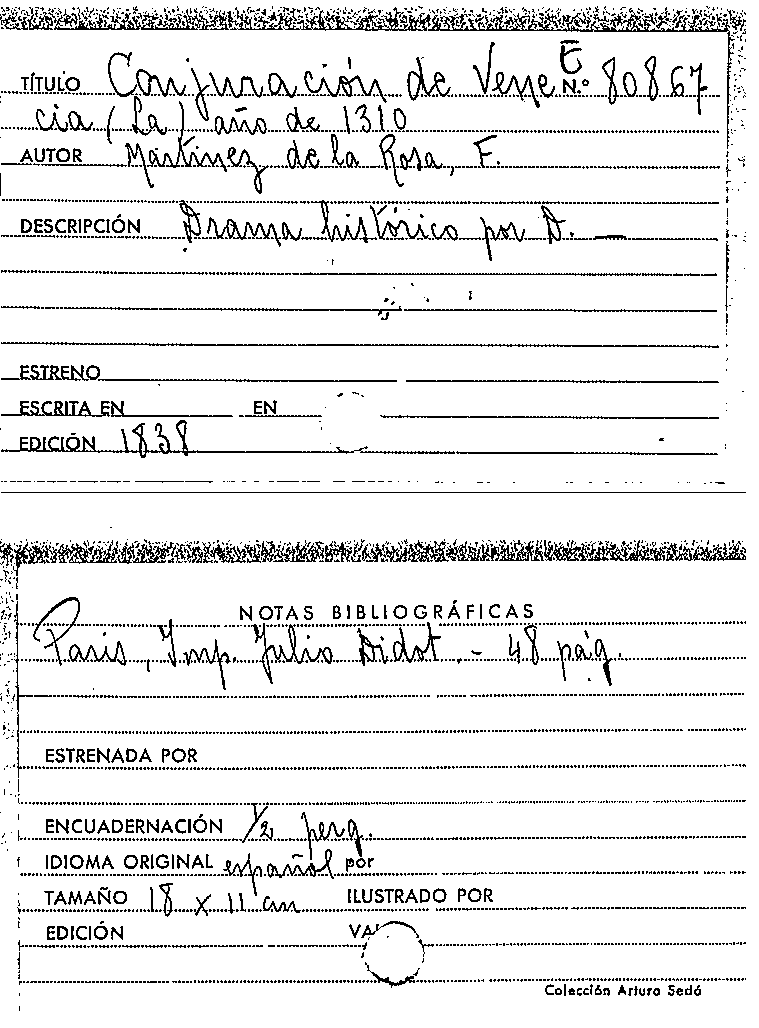 TÍTULO Conjuración de Vene E N.º 80867
cia (La) año de 1310
AUTOR Martínez de la Rosa, F.
DESCRIPCIÓN Drama histórico por D. —
ESTRENO
ESCRITA EN EN
EDICIÓN 1838
NOTAS BIBLIOGRÁFICAS
Paris, Imp. Julio Didot. - 48 pág.
ESTRENADA POR
ENCUADERNACIÓN 1/2 perg.
IDIOMA ORIGINAL español por
TAMAÑO 18 x 11 cm ILUSTRADO POR
EDICIÓN VAL
Colección Arturo Sedó